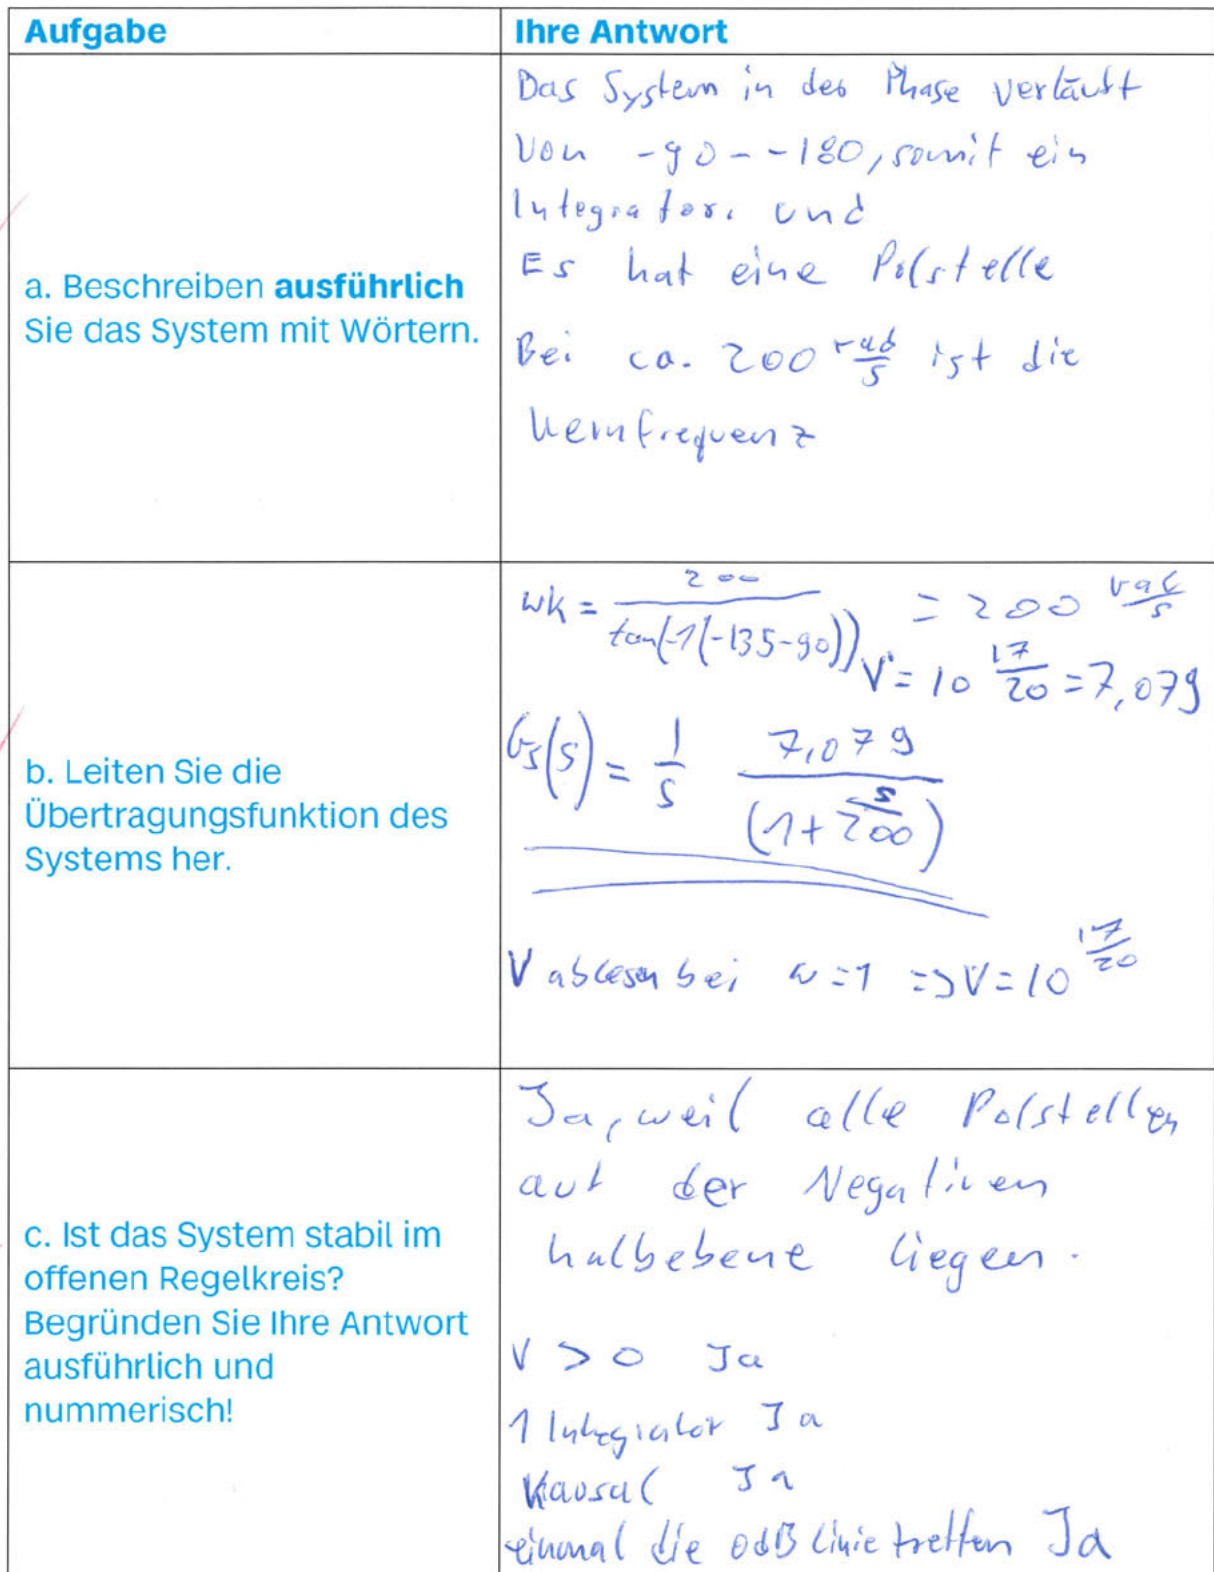 Aufgabe
Ihre Antwort
a. Beschreiben ausführlich
Sie das System mit Wörtern.
Das System in der Phase verläuft
Von -90--180, somit ein
Integrator. und
Es hat eine Polstelle
Bei ca. 200 rad/s ist die
Kennfrequenz
b. Leiten Sie die
Übertragungsfunktion des
Systems her.
wk = 200/tan(-1(-135-90)) = 200 rad/s
V = 10 17/20 = 7,079
Gs(s) = 1/s 7,079/(1+s/200)
V ablesen bei ω=1 => V=10^17/20
c. Ist das System stabil im
offenen Regelkreis?
Begründen Sie Ihre Antwort
ausführlich und
nummerisch!
Ja, weil alle Polstellen
auf der Negativen
halbebene liegen.
V > 0 Ja
1 Integrator Ja
Kausal Ja
einmal die 0dB Linie treffen Ja